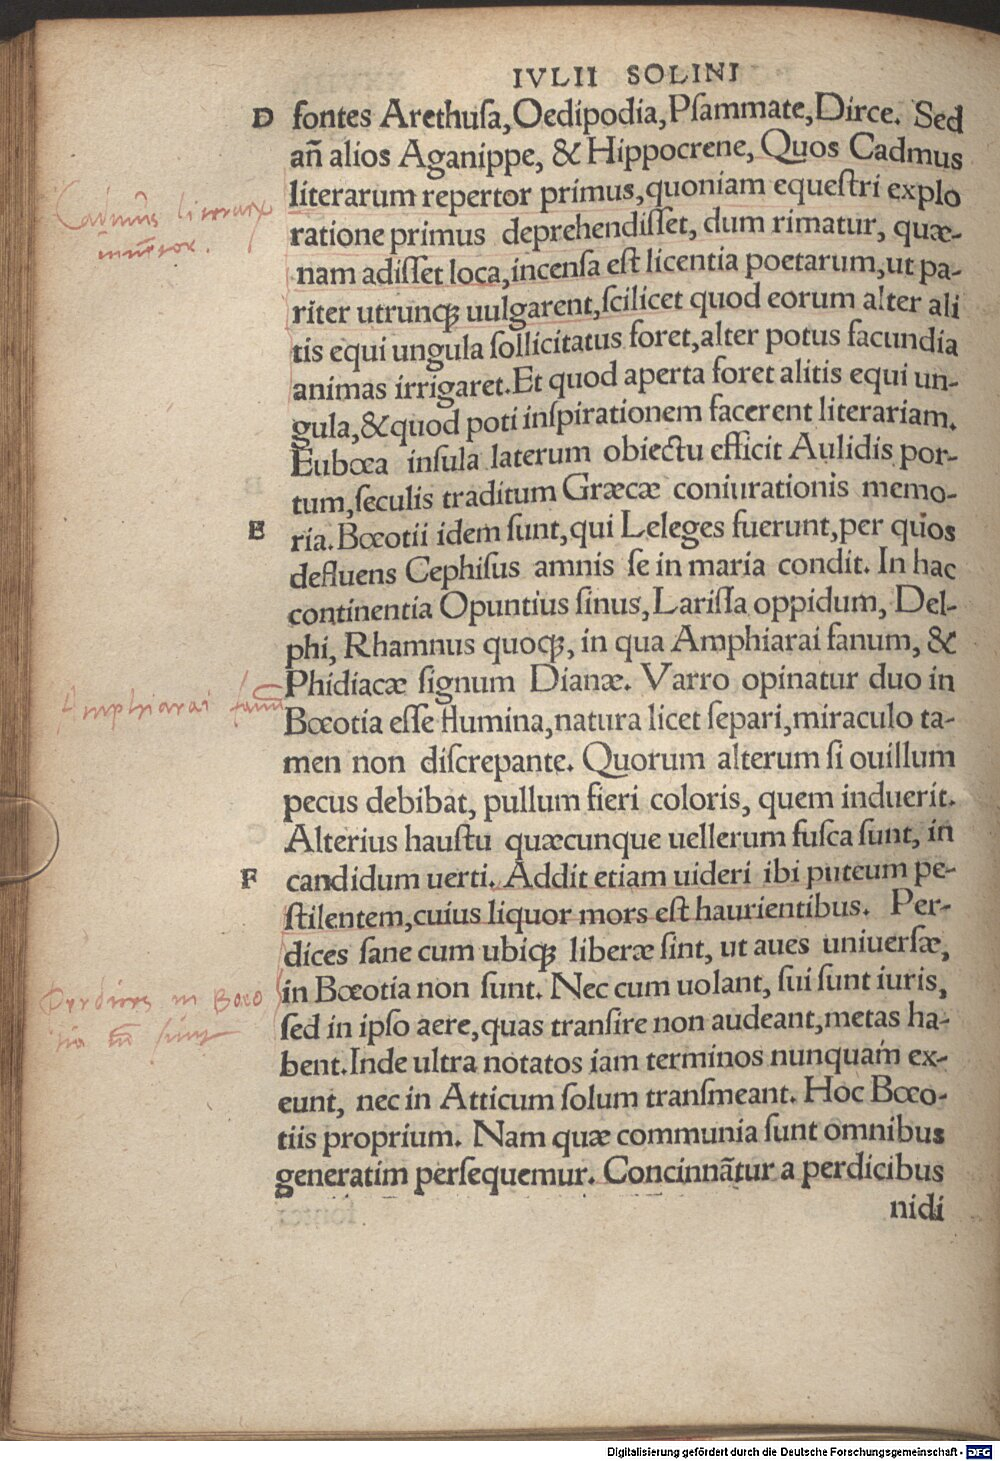 IVLII SOLINI
D fontes Arethuſa,Oedipodia,Pſammate,Dirce. Sed
an̄ alios Aganippe, & Hippocrene, Quos Cadmus
literarum repertor primus,quoniam equeſtri explo
ratione primus deprehendiſſet, dum rimatur, quæ-
nam adiſſet loca,incenſa eſt licentia poetarum,ut pa-
riter utrunqꝫ uulgarent,ſcilicet quod eorum alter ali
tis equi ungula ſollicitatus foret,alter potus facundia
animas irrigaret.Et quod aperta foret alitis equi un-
gula,&quod poti inſpirationem facerent literariam.
Eubœa inſula laterum obiectu efficit Aulidis por-
tum,ſeculis traditum Græcæ coniurationis memo-
E ria.Bœotii idem ſunt,qui Leleges fuerunt,per quos
defluens Cephiſus amnis ſe in maria condit. In hac
continentia Opuntius ſinus,Lariſſa oppidum, Del-
phi, Rhamnus quoqꝫ, in qua Amphiarai fanum, &
Phidiacæ ſignum Dianæ. Varro opinatur duo in
Bœotia eſſe flumina,natura licet ſepari,miraculo ta-
men non diſcrepante. Quorum alterum ſi ouillum
pecus debibat, pullum fieri coloris, quem induerit.
Alterius hauſtu quæcunque uellerum fuſca ſunt, in
F candidum uerti. Addit etiam uideri ibi puteum pe-
ſtilentem,cuius liquor mors eſt haurientibus. Per-
dices ſane cum ubiqꝫ liberæ ſint, ut aues uniuerſæ,
in Bœotia non ſunt. Nec cum uolant, ſui ſunt iuris,
ſed in ipſo aere,quas tranſire non audeant,metas ha-
bent.Inde ultra notatos iam terminos nunquam ex-
eunt, nec in Atticum ſolum tranſmeant. Hoc Bœo-
tiis proprium. Nam quæ communia ſunt omnibus
generatim perſequemur. Concinnātur a perdicibus
nidi
Amphiarai fanū
Perdices in Boeo
tia
Digitalisierung gefördert durch die Deutsche Forschungsgemeinschaft - DFG